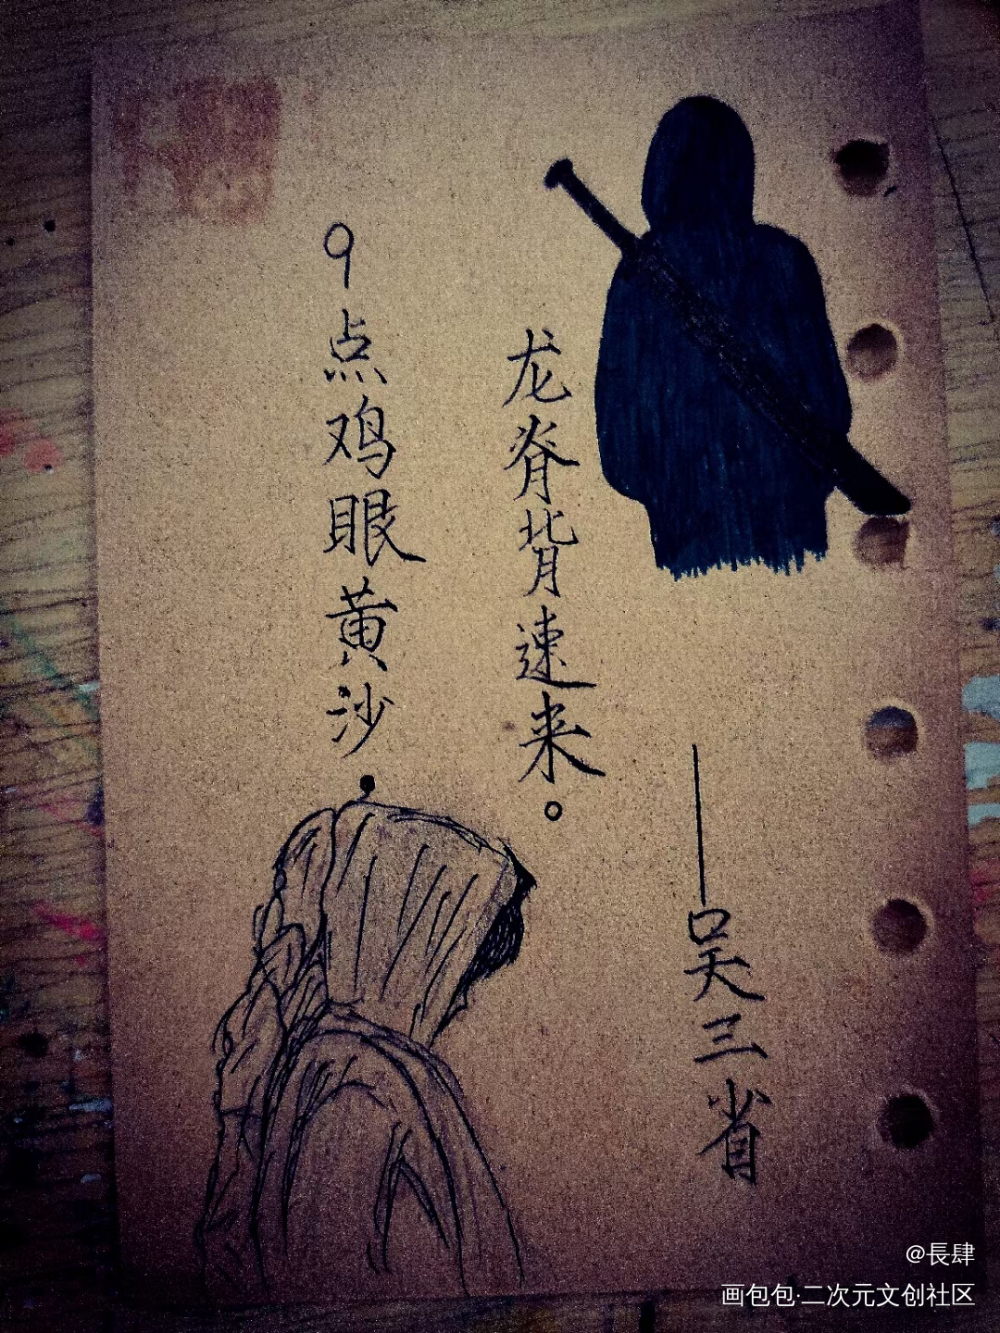 9点鸡眼黄沙
龙脊背速来。
——吴三省
@長肆
画包包·二次元文创社区